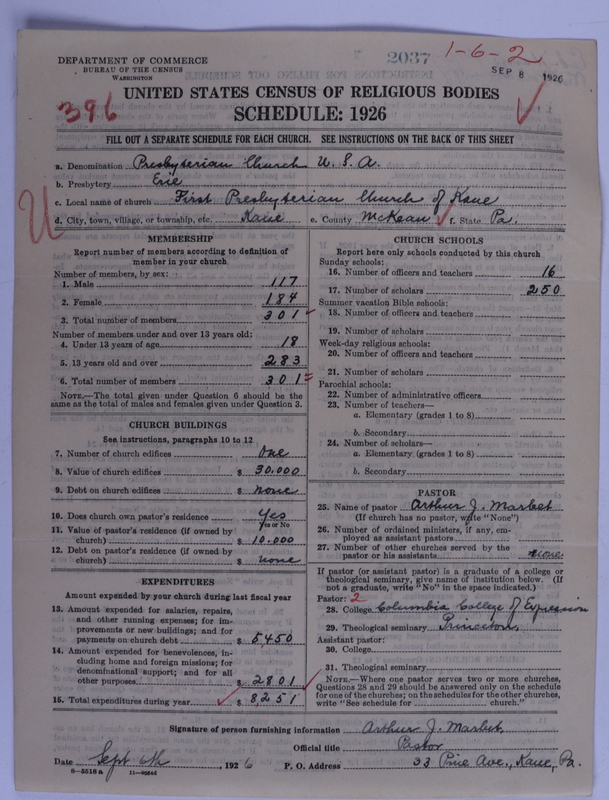 DEPARTMENT OF COMMERCE
BUREAU OF THE CENSUS
WASHINGTON
2037
1-6-2
SEP 8 1926
396
UNITED STATES CENSUS OF RELIGIOUS BODIES
SCHEDULE: 1926
FILL OUT A SEPARATE SCHEDULE FOR EACH CHURCH. SEE INSTRUCTIONS ON THE BACK OF THIS SHEET
a. Denomination Presbyterian Church U. S. A.
b. Presbytery Erie
c. Local name of church First Presbyterian Church of Kane
d. City, town, village, or township, etc. Kane e. County McKean f. State Pa.
MEMBERSHIP
Report number of members according to definition of member in your church
Number of members, by sex:
1. Male 117
2. Female 184
3. Total number of members 301
Number of members under and over 13 years old:
4. Under 13 years of age 18
5. 13 years old and over 283
6. Total number of members 301
NOTE.—The total given under Question 6 should be the
same as the total of males and females given under Question 3.
CHURCH BUILDINGS
See instructions, paragraphs 10 to 12
7. Number of church edifices One
8. Value of church edifices $ 30.000
9. Debt on church edifices $ none
10. Does church own pastor's residence Yes
Yes or No
11. Value of pastor's residence (if owned by
church) $ 10.000
12. Debt on pastor's residence (if owned by
church) $ none
EXPENDITURES
Amount expended by your church during last fiscal year
13. Amount expended for salaries, repairs,
and other running expenses; for im-
provements or new buildings; and for
payments on church debt $ 5,450
14. Amount expended for benevolences, in-
cluding home and foreign missions; for
denominational support; and for all
other purposes $ 2801
15. Total expenditures during year $ 8251
CHURCH SCHOOLS
Report here only schools conducted by this church
Sunday schools:
16. Number of officers and teachers 16
17. Number of scholars 250
Summer vacation Bible schools:
18. Number of officers and teachers
19. Number of scholars
Week-day religious schools:
20. Number of officers and teachers
21. Number of scholars
Parochial schools:
22. Number of administrative officers
23. Number of teachers—
a. Elementary (grades 1 to 8)
b. Secondary
24. Number of scholars—
a. Elementary (grades 1 to 8)
b. Secondary
PASTOR
25. Name of pastor Arthur J. Marbet
(If church has no pastor, write "None")
26. Number of ordained ministers, if any, em-
ployed as assistant pastors
27. Number of other churches served by the
pastor or his assistants none
If pastor (or assistant pastor) is a graduate of a college or
theological seminary, give name of institution below. (If
not a graduate, write "No" in the space indicated.)
Pastor: 2
28. College Columbia College of Expression
29. Theological seminary Princeton
Assistant pastor:
30. College
31. Theological seminary
NOTE.—Where one pastor serves two or more churches,
Questions 28 and 29 should be answered only on the schedule
for one of the churches; on the schedules for the other churches,
write "See schedule for church."
Signature of person furnishing information Arthur J. Marbet
Official title Pastor
Date Sept 6th, 1926 P. O. Address 33 Pine Ave., Kane, Pa.
8-5518 a